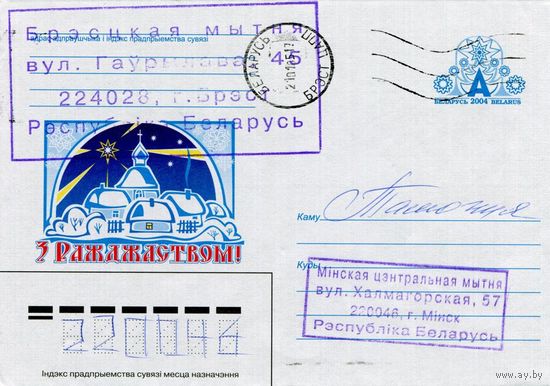 Брэсцкая мытня
Адрас адпраўшчыка і індэкс прадпрыемства сувязі
вул. Гаўрылава 45
224028, г.Брэст
Рэспубліка Беларусь
БЕЛАРУСЬ
БРЭСТ
А
БЕЛАРУСЬ 2004 BELARUS
З РАЖАСТВОМ!
Каму
Куды
Мінская цэнтральная мытня
вул. Халмагорская, 57
220046, г. Мінск
Рэспубліка Беларусь
220046
Індэкс прадпрыемства сувязі месца назначэння
www.ay.by